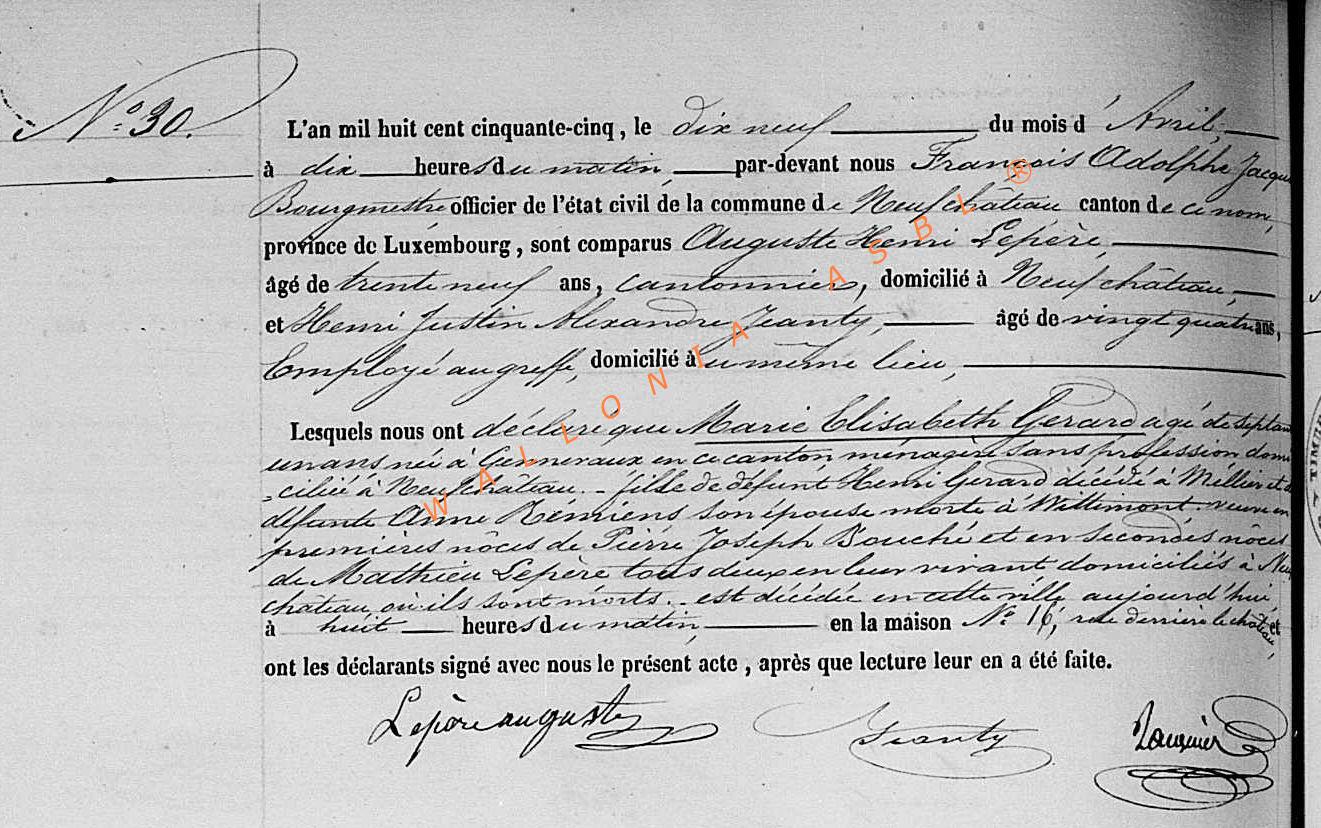 N° 30.
L'an mil huit cent cinquante-cinq, le dix neuf du mois d' Avril,
à dix heures du matin, par-devant nous François Adolphe Jacque
Bourgmestre officier de l'état civil de la commune de Neufchâteau canton de ce nom,
province de Luxembourg, sont comparus Auguste Henri Lepère,
âgé de trente neuf ans, cantonnier, domicilié à Neufchâteau,
et Henri Justin Alexandre Jeanty, âgé de vingt quatre ans,
Employé au greffe, domicilié au même lieu,
Lesquels nous ont déclaré que Marie Elisabeth Gerard agé de septante
un ans née à Gennevaux en ce canton ménagère sans profession domi
-ciliée à Neufchâteau. - fille de défunt Henri Gerard décédé à Mellier et de
défunte Anne Rémiens son épouse morte à Wittimont. veuve en
premières nôces de Pierre Joseph Bouché et en secondes nôces
de Mathieu Lepère tous deux en leur vivant domiciliés à Neuf
château où ils sont morts. - est décédée en cette ville aujourd'hui
à huit heures du matin, en la maison N° 16, rue derrière le château, et
ont les déclarants signé avec nous le présent acte, après que lecture leur en a été faite.
Lepère auguste Jeanty
WALLONIA ASBL ®
TIMBR